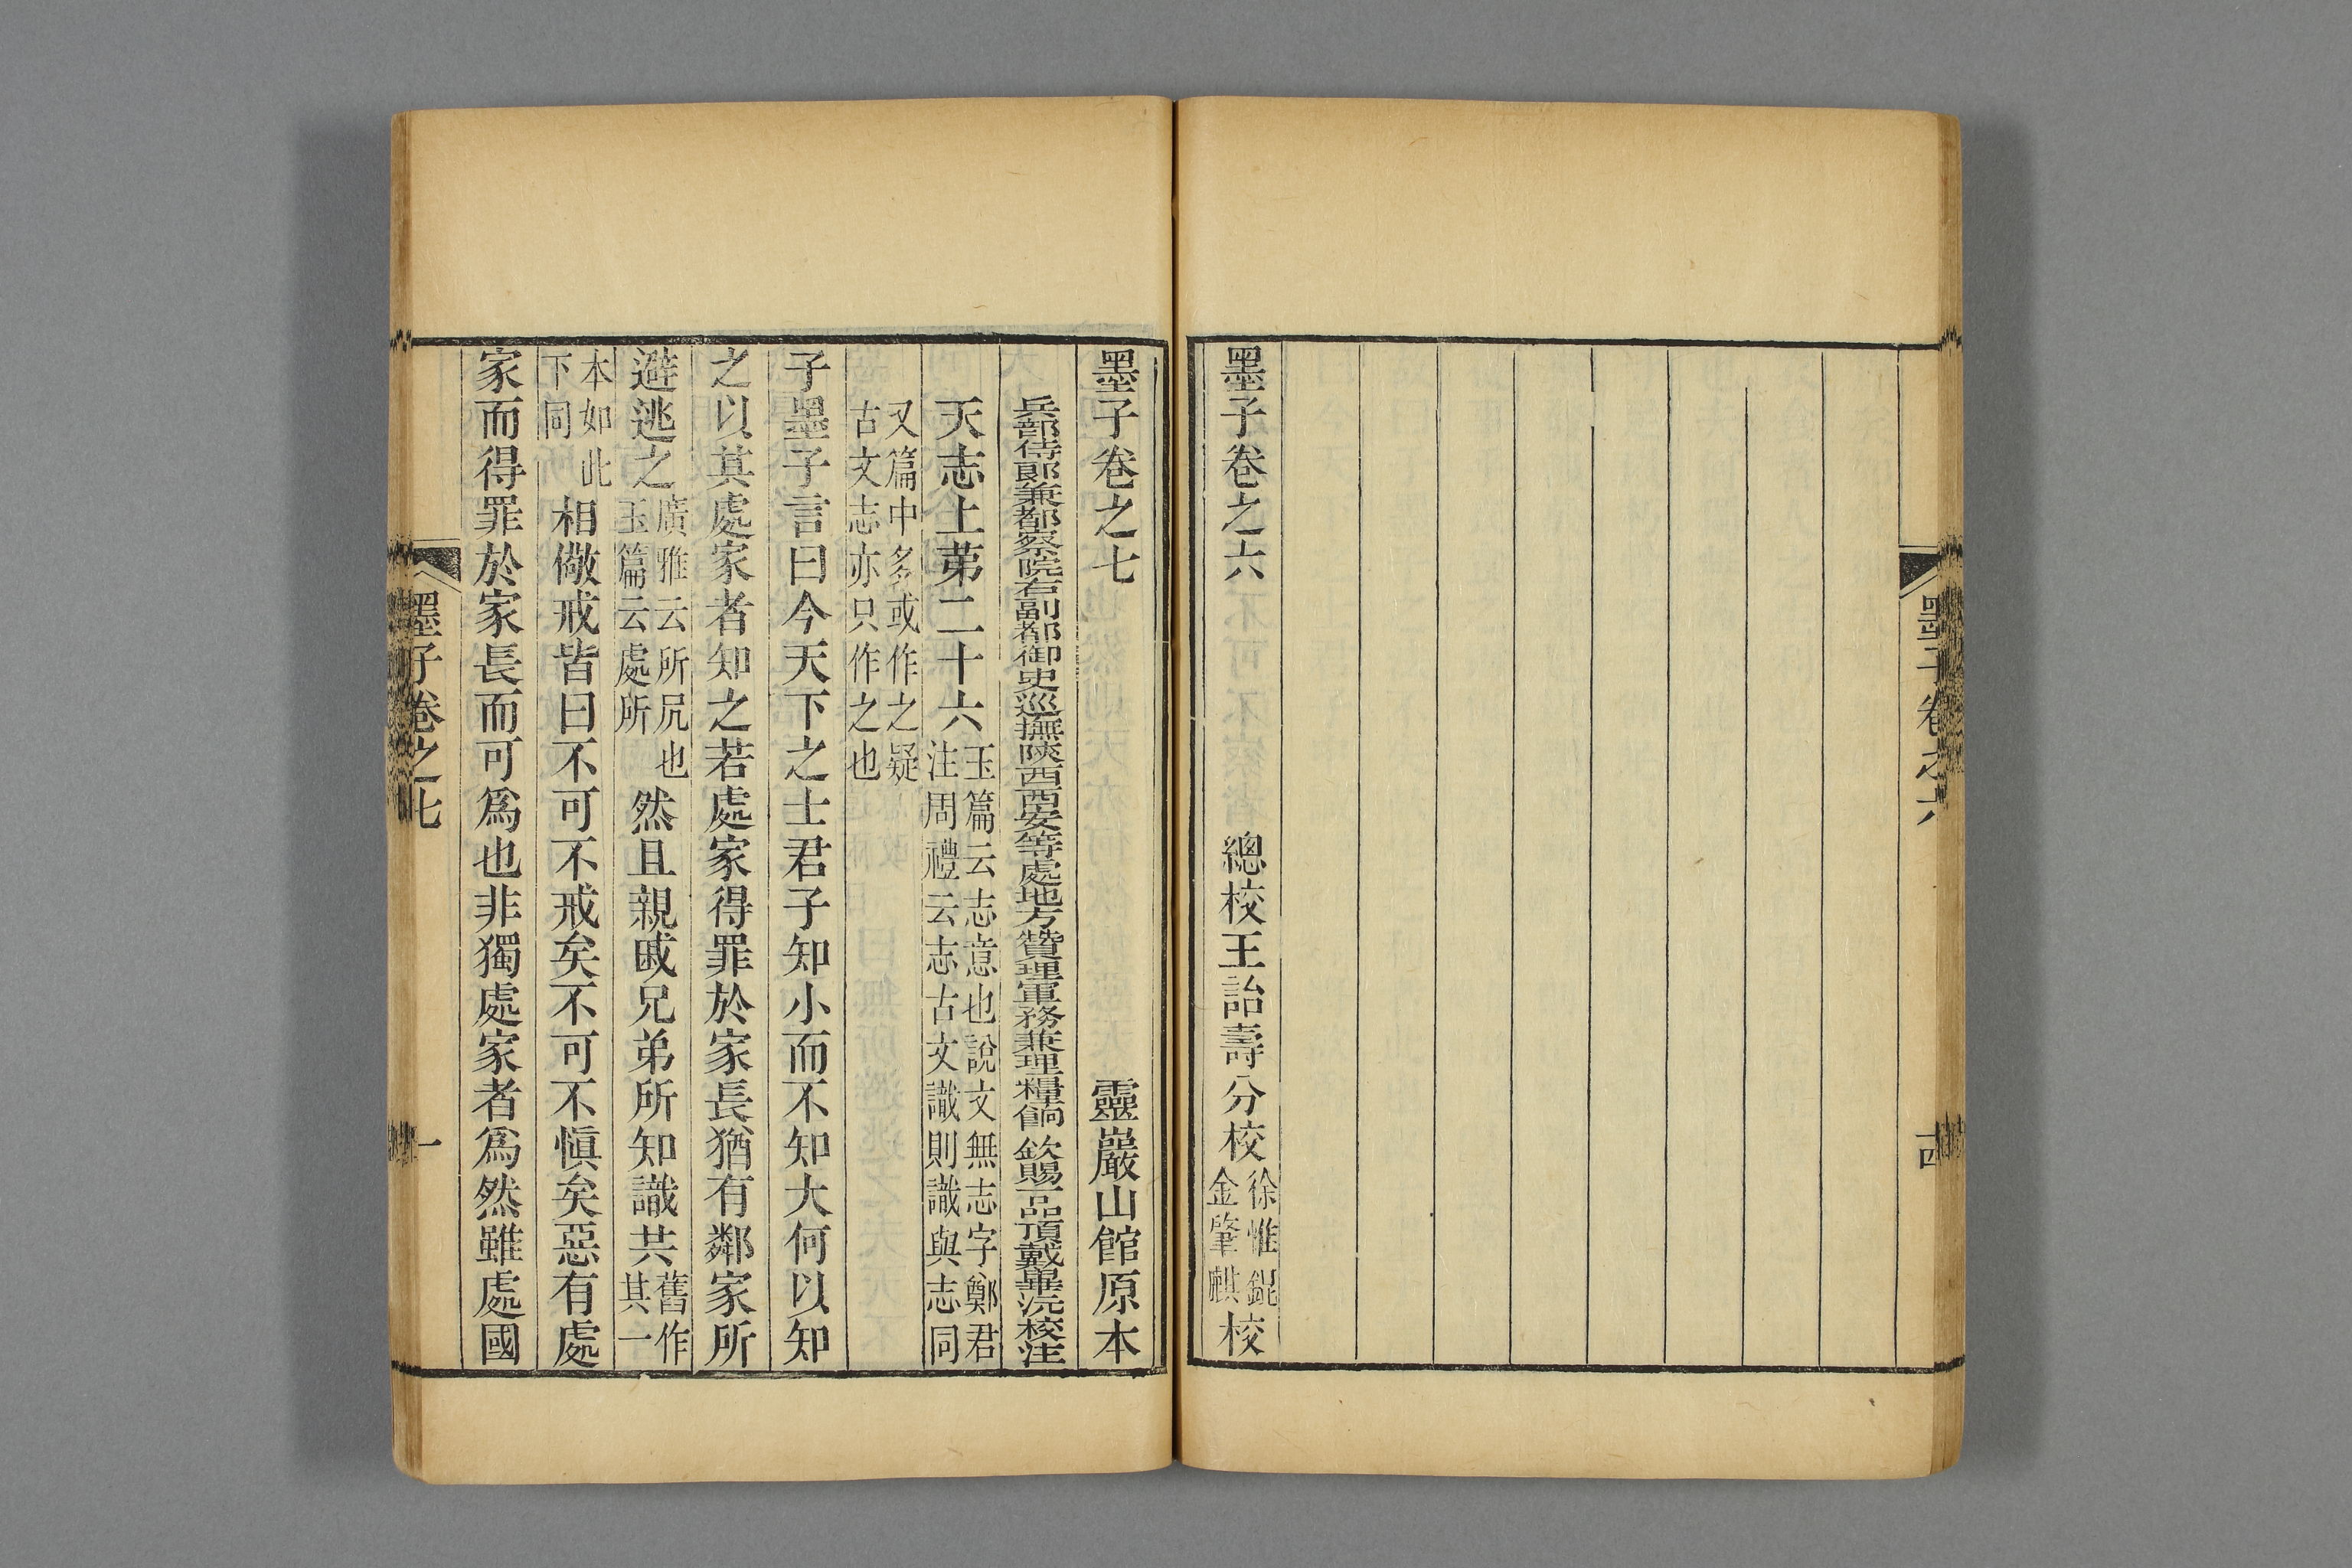 墨子卷之六
十四
墨子卷之六 總校王詒壽分校徐惟錕金肇麒校
墨子卷之七 靈巖山館原本
兵部侍郎兼都察院右副都御史巡撫陝西西安等處地方贊理軍務兼理糧餉 欽賜一品頂戴畢沅校注
天志上苐二十六玉篇云志意也說文無志字鄭君注周禮云志古文識則識與志同
又篇中多或作之疑古文志亦只作之也
子墨子言曰今天下之士君子知小而不知大何以知
之以其處家者知之若處家得罪於家長猶有鄰家所
避逃之廣雅云所尻也玉篇云處所然且親戚兄弟所知識共舊作其一
本如此下同相儆戒皆曰不可不戒矣不可不慎矣惡有處
家而得罪於家長而可爲也非獨處家者爲然雖處國
墨子卷之七
一